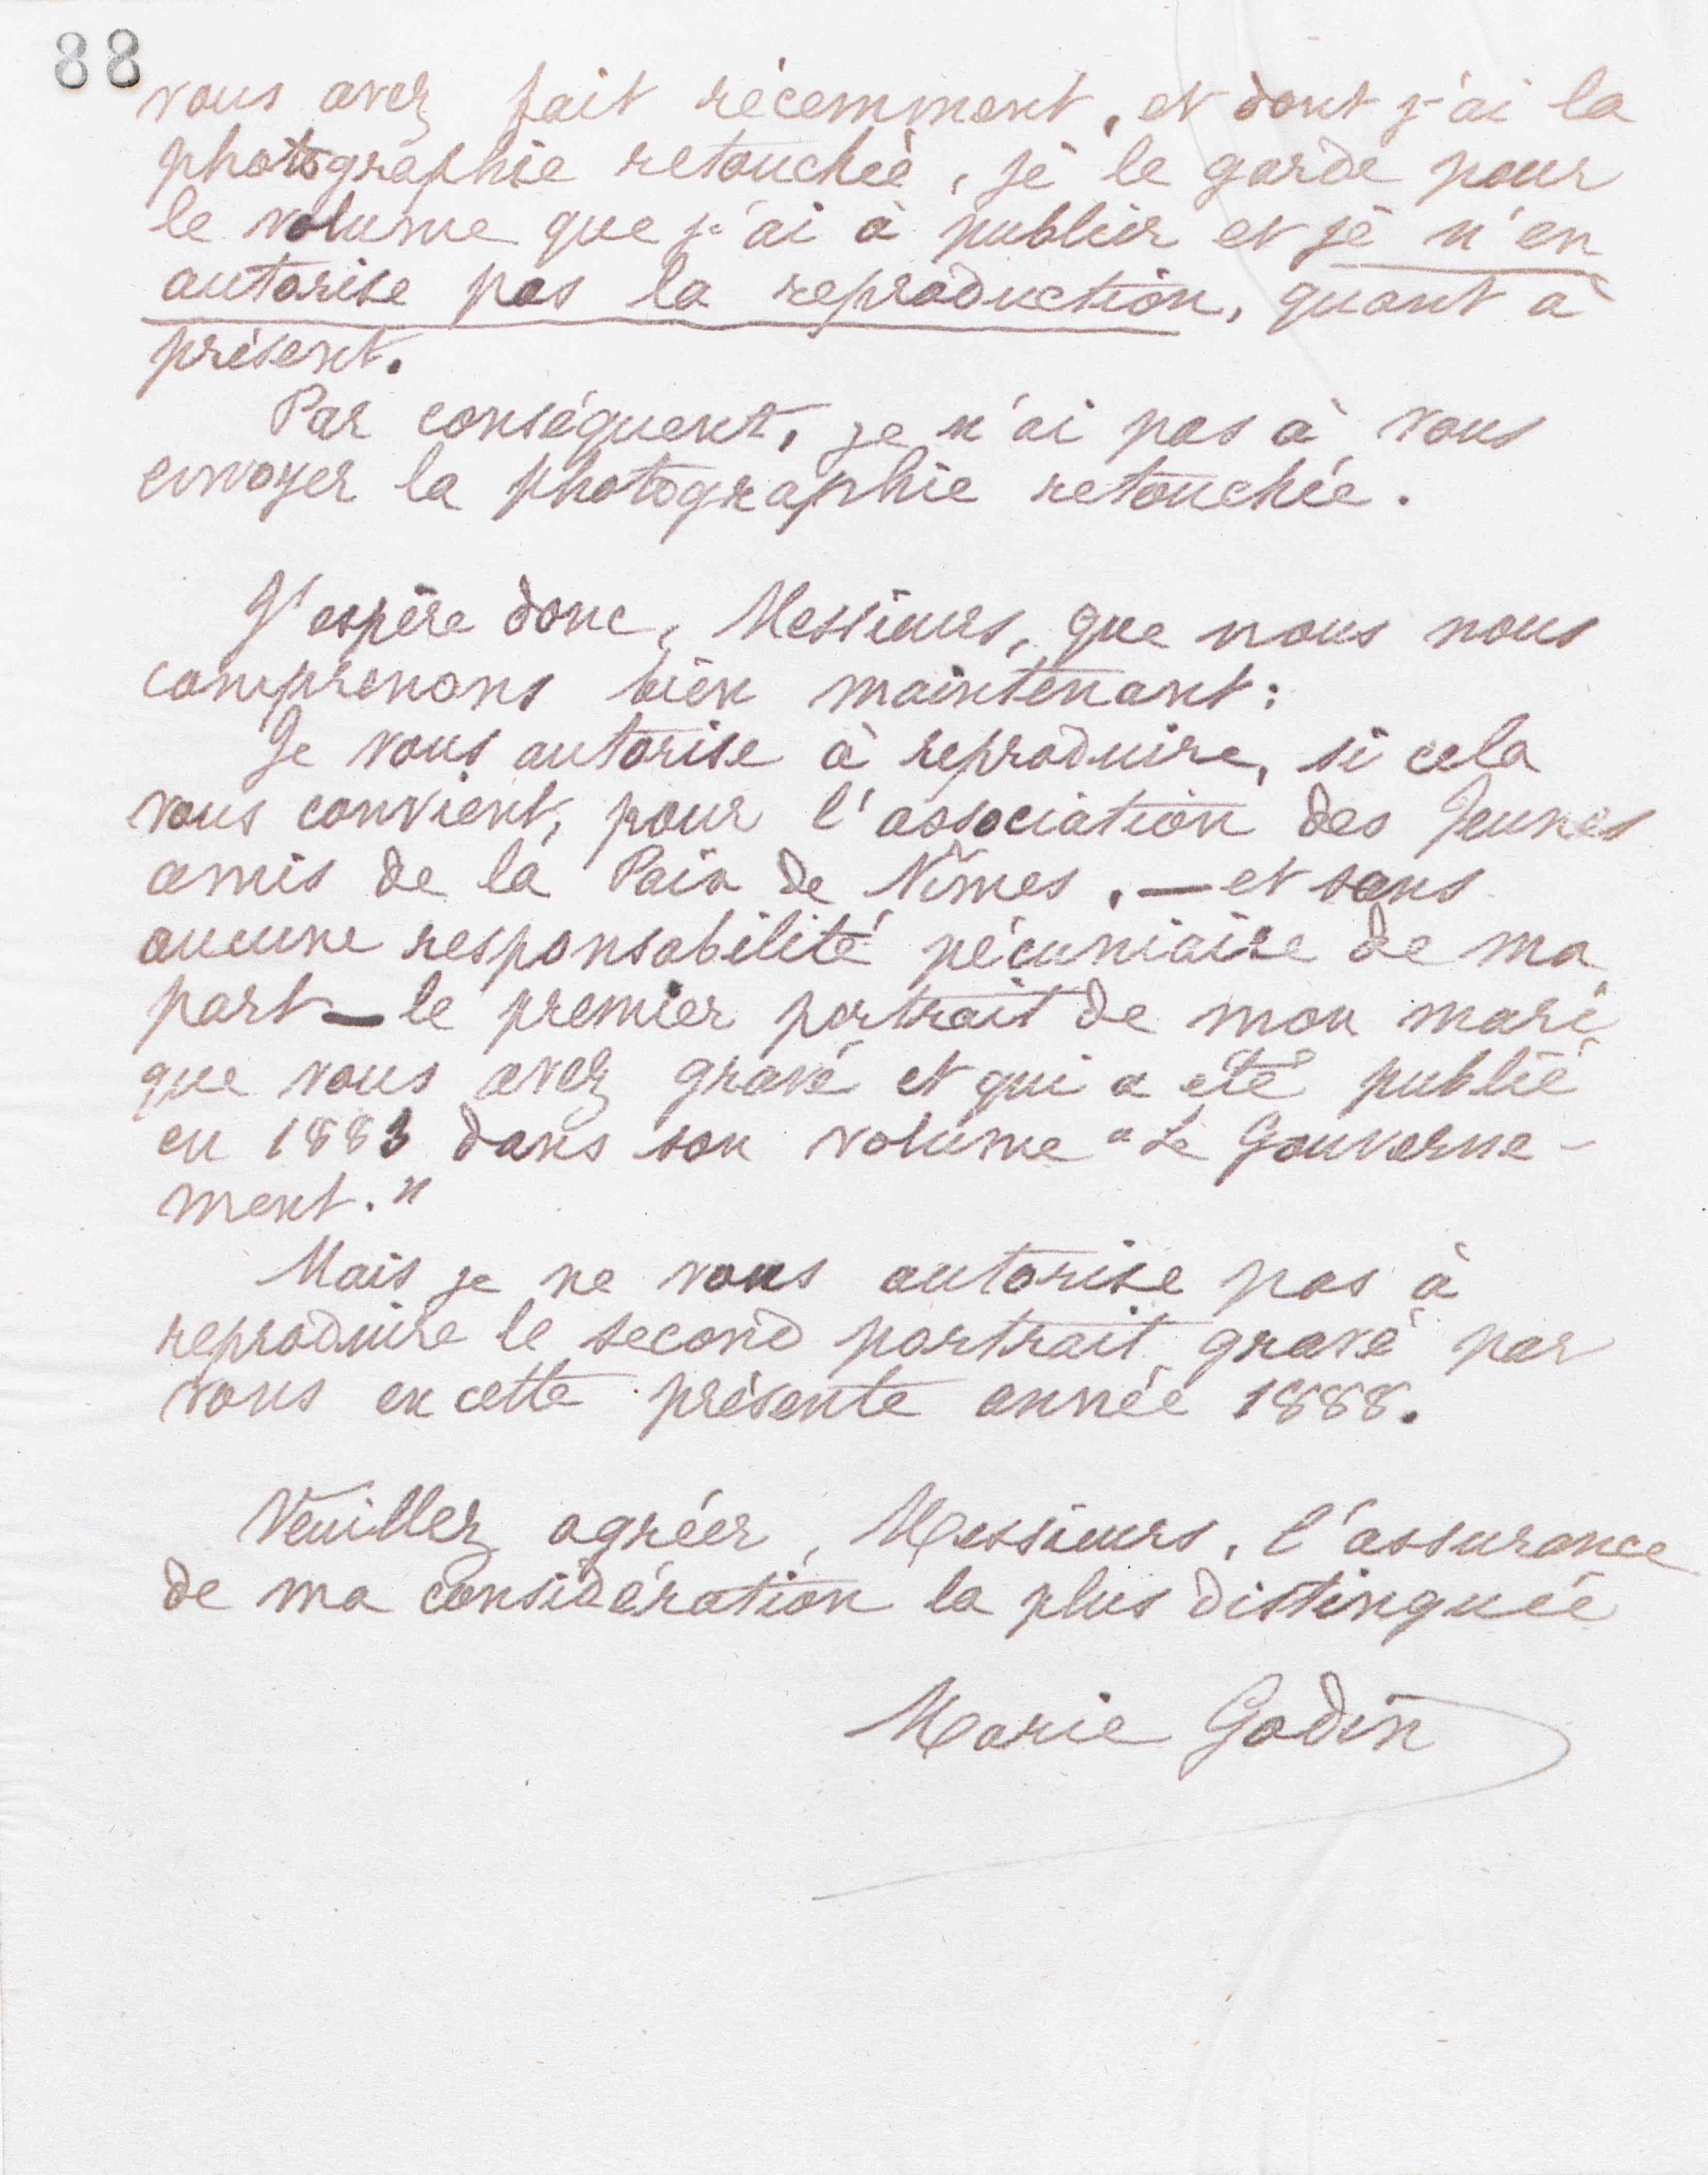 88
vous avez fait récemment, et dont j'ai la
photographie retouchée, je le garde pour
le volume que j'ai à publier et je n'en
autorise pas la reproduction, quant à
présent.
Par conséquent, je n'ai pas à vous
envoyer la photographie retouchée.
J'espère donc, Messieurs, que nous nous
comprenons bien maintenant:
Je vous autorise à reproduire, si cela
vous convient, pour l'association des Jeunes
amis de la Paix de Nîmes, — et sans
aucune responsabilité pécuniaire de ma
part — le premier portrait de mon mari
que vous avez gravé et qui a été publié
en 1883 dans son volume "Le Gouverne-
ment."
Mais je ne vous autorise pas à
reproduire le second portrait gravé par
vous en cette présente année 1888.
Veuillez agréer, Messieurs, l'assurance
de ma considération la plus distinguée
Marie Godin